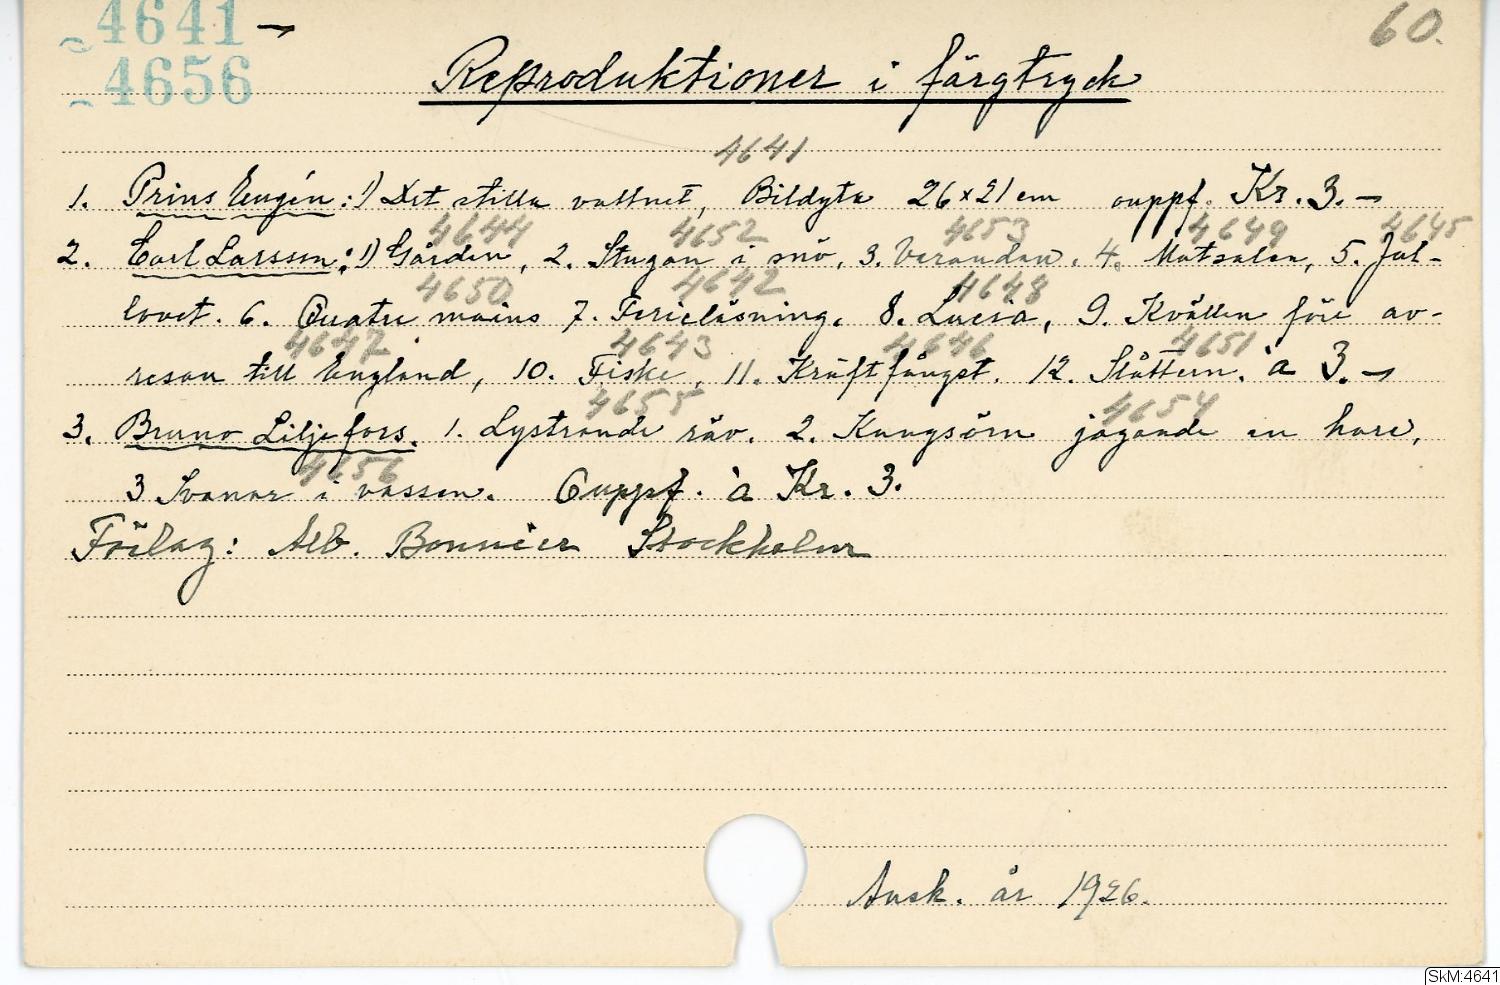 4641 –
4656
60.
Reproduktioner i färgtryck
4641
1. Prins Eugén: 1) Det stilla vattnet, Bildyta 26 x 21 cm ouppf. Kr. 3. –
4644 4652 4653 4649 4645
2. Carl Larsson: 1) Gården, 2. Stugan i snö, 3. Verandan, 4. Matsalen, 5. Jul-
4650 4642 4648
lovet. 6. Quatre mains 7. Ferieläsning, 8. Lucia, 9. Kvällen före av-
4647 4643 4646 4651
resan till England, 10. Fiske, 11. Kräftfångst. 12. Slåttern. à 3. –
4655 4654
3. Bruno Liljefors. 1. Lystrande räv. 2. Kungsörn jagande en hare,
4656
3 Svanar i vassen. Ouppf. à Kr. 3.
Förlag: Alb. Bonnier Stockholm
Ansk. år 1926.
SkM:4641